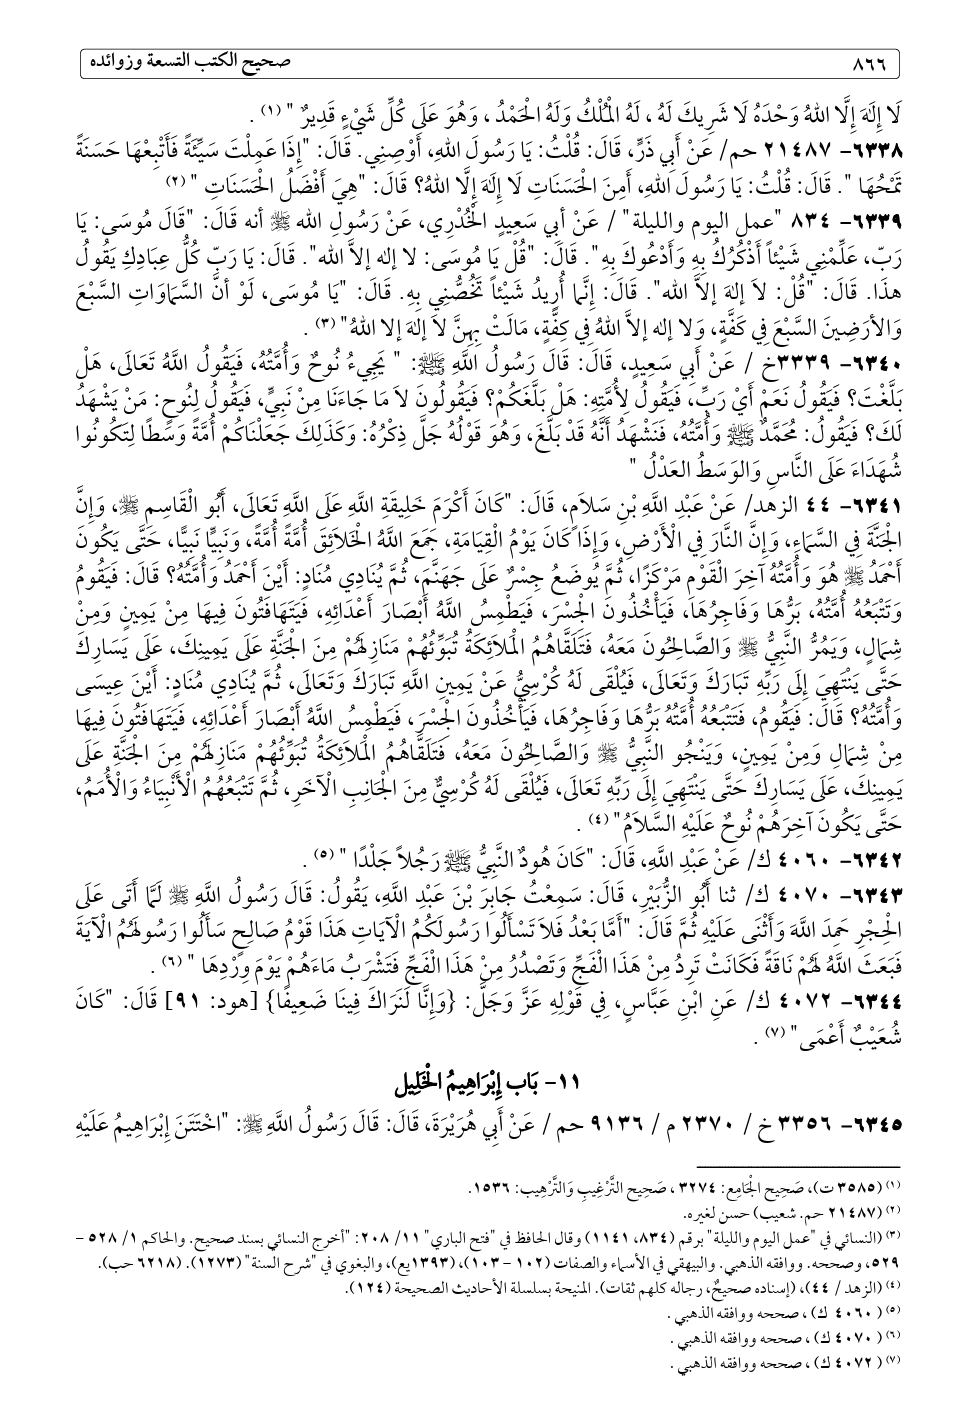 ٨٦٦ صحيح الكتب التسعة وزوائده
لَا إِلَهَ إِلَّا اللهُ وَحْدَهُ لَا شَرِيكَ لَهُ ، لَهُ الْمُلْكُ وَلَهُ الْحَمْدُ ، وَهُوَ عَلَى كُلِّ شَيْءٍ قَدِيرٌ " (١) .
٦٣٣٨- ٢١٤٨٧ حم/ عَنْ أَبِي ذَرٍّ، قَالَ: قُلْتُ: يَا رَسُولَ اللهِ، أَوْصِنِي. قَالَ: "إِذَا عَمِلْتَ سَيِّئَةً فَأَتْبِعْهَا حَسَنَةً
تَمْحُهَا ". قَالَ: قُلْتُ: يَا رَسُولَ اللهِ، أَمِنَ الْحَسَنَاتِ لَا إِلَهَ إِلَّا اللهُ؟ قَالَ: "هِيَ أَفْضَلُ الْحَسَنَاتِ " (٢)
٦٣٣٩- ٨٣٤ "عمل اليوم والليلة" / عَنْ أبِي سَعِيدٍ الْخُدْرِي، عَنْ رَسُولِ الله ﷺ أنه قَالَ: "قَالَ مُوسَى: يَا
رَبّ، عَلِّمْنِي شَيْئاً أَذْكُرُكَ بِهِ وَأَدْعُوكَ بِهِ". قَالَ: "قُلْ يَا مُوسَى: لا إله إلاَّ الله". قَالَ: يَا رَبّ كُلُّ عِبادِكِ يَقُولُ
هذَا. قَالَ: "قُلْ: لاَ إلهَ إلاَّ الله". قَالَ: إِنَّما أُرِيدُ شَيْئاً تَخُصُّنِي بِهِ. قَالَ: "يَا مُوسَى، لَوْ أنَّ السَّمَاوَاتِ السَّبْعَ
وَالأرَضِينَ السَّبْعَ فِي كَفَّةٍ، وَلا إله إلاَّ اللهُ فِي كِفَّةٍ، مَالَتْ بِهِنَّ لاَ إلهَ إلا اللهُ" (٣) .
٦٣٤٠- ٣٣٣٩خ / عَنْ أَبِي سَعِيدٍ، قَالَ: قَالَ رَسُولُ اللَّهِ ﷺ: " يَجِيءُ نُوحٌ وَأُمَّتُهُ، فَيَقُولُ اللَّهُ تَعَالَى، هَلْ
بَلَّغْتَ؟ فَيَقُولُ نَعَمْ أَيْ رَبِّ، فَيَقُولُ لِأُمَّتِهِ: هَلْ بَلَّغَكُمْ؟ فَيَقُولُونَ لاَ مَا جَاءَنَا مِنْ نَبِيٍّ، فَيَقُولُ لِنُوحٍ: مَنْ يَشْهَدُ
لَكَ؟ فَيَقُولُ: مُحَمَّدٌ ﷺ وَأُمَّتُهُ، فَنَشْهَدُ أَنَّهُ قَدْ بَلَّغَ، وَهُوَ قَوْلُهُ جَلَّ ذِكْرُهُ: وَكَذَلِكَ جَعَلْنَاكُمْ أُمَّةً وَسَطًا لِتَكُونُوا
شُهَدَاءَ عَلَى النَّاسِ وَالوَسَطُ العَدْلُ "
٦٣٤١- ٤٤ الزهد/ عَنْ عَبْدِ اللَّهِ بْنِ سَلاَمٍ، قَالَ: "كَانَ أَكْرَمَ خَلِيقَةِ اللَّهِ عَلَى اللَّهِ تَعَالَى، أَبُو الْقَاسِمِ ﷺ، وَإِنَّ
الْجَنَّةَ فِي السَّمَاءِ، وَإِنَّ النَّارَ فِي الْأَرْضِ، وَإِذَا كَانَ يَوْمُ الْقِيَامَةِ، جَمَعَ اللَّهُ الْخَلاَئِقَ أُمَّةً أُمَّةً، وَنَبِيًّا نَبِيًّا، حَتَّى يَكُونَ
أَحْمَدُ ﷺ هُوَ وَأُمَّتُهُ آخِرَ الْقَوْمِ مَرْكَزًا، ثُمَّ يُوضَعُ جِسْرٌ عَلَى جَهَنَّمَ، ثُمَّ يُنَادِي مُنَادٍ: أَيْنَ أَحْمَدُ وَأُمَّتُهُ؟ قَالَ: فَيَقُومُ
وَتَتْبَعُهُ أُمَّتُهُ، بَرُّهَا وَفَاجِرُهَا، فَيَأْخُذُونَ الْجِسْرَ، فَيَطْمِسُ اللَّهُ أَبْصَارَ أَعْدَائِهِ، فَيَتَهَافَتُونَ فِيهَا مِنْ يَمِينٍ وَمِنْ
شِمَالٍ، وَيَمُرُّ النَّبِيُّ ﷺ وَالصَّالِحُونَ مَعَهُ، فَتَلَقَّاهُمُ الْمَلاَئِكَةُ تُبَوِّئُهُمْ مَنَازِلَهُمْ مِنَ الْجَنَّةِ عَلَى يَمِينِكَ، عَلَى يَسَارِكَ
حَتَّى يَنْتَهِيَ إِلَى رَبِّهِ تَبَارَكَ وَتَعَالَى، فَيُلْقَى لَهُ كُرْسِيٌّ عَنْ يَمِينِ اللَّهِ تَبَارَكَ وَتَعَالَى، ثُمَّ يُنَادِي مُنَادٍ: أَيْنَ عِيسَى
وَأُمَّتُهُ؟ قَالَ: فَيَقُومُ، فَتَتْبَعُهُ أُمَّتُهُ بَرُّهَا وَفَاجِرُهَا، فَيَأْخُذُونَ الْجِسْرَ، فَيَطْمِسُ اللَّهُ أَبْصَارَ أَعْدَائِهِ، فَيَتَهَافَتُونَ فِيهَا
مِنْ شِمَالٍ وَمِنْ يَمِينٍ، وَيَنْجُو النَّبِيُّ ﷺ وَالصَّالِحُونَ مَعَهُ، فَتَلَقَّاهُمُ الْمَلاَئِكَةُ تُبَوِّئُهُمْ مَنَازِلَهُمْ مِنَ الْجَنَّةِ عَلَى
يَمِينِكَ، عَلَى يَسَارِكَ حَتَّى يَنْتَهِيَ إِلَى رَبِّهِ تَعَالَى، فَيُلْقَى لَهُ كُرْسِيٌّ مِنَ الْجَانِبِ الْآخَرِ، ثُمَّ تَتْبَعُهُمُ الْأَنْبِيَاءُ وَالْأُمَمُ،
حَتَّى يَكُونَ آخِرَهُمْ نُوحٌ عَلَيْهِ السَّلاَمُ" (٤) .
٦٣٤٢- ٤٠٦٠ ك/ عَنْ عَبْدِ اللَّهِ، قَالَ: "كَانَ هُودٌ النَّبِيُّ ﷺ رَجُلاً جَلْدًا " (٥) .
٦٣٤٣- ٤٠٧٠ ك/ ثنا أَبُو الزُّبَيْرِ، قَالَ: سَمِعْتُ جَابِرَ بْنَ عَبْدِ اللَّهِ، يَقُولُ: قَالَ رَسُولُ اللَّهِ ﷺ لَمَّا أَتَى عَلَى
الْحِجْرِ حَمِدَ اللَّهَ وَأَثْنَى عَلَيْهِ ثُمَّ قَالَ: "أَمَّا بَعْدُ فَلاَ تَسْأَلُوا رَسُولَكُمُ الْآيَاتِ هَذَا قَوْمُ صَالِحٍ سَأَلُوا رَسُولَهُمُ الْآيَةَ
فَبَعَثَ اللَّهُ لَهُمْ نَاقَةً فَكَانَتْ تَرِدُ مِنْ هَذَا الْفَجِّ وَتَصْدُرُ مِنْ هَذَا الْفَجِّ فَتَشْرَبُ مَاءَهُمْ يَوْمَ وِرْدِهَا " (٦) .
٦٣٤٤- ٤٠٧٢ ك/ عَنِ ابْنِ عَبَّاسٍ، فِي قَوْلِهِ عَزَّ وَجَلَّ: {وَإِنَّا لَنَرَاكَ فِينَا ضَعِيفًا} [هود: ٩١] قَالَ: "كَانَ
شُعَيْبٌ أَعْمَى" (٧) .
١١- بَاب إِبْرَاهِيمُ الْخَلِيل
٦٣٤٥- ٣٣٥٦ خ / ٢٣٧٠ م / ٩١٣٦ حم / عَنْ أَبِي هُرَيْرَةَ، قَالَ: قَالَ رَسُولُ اللَّهِ ﷺ: "اخْتَتَنَ إِبْرَاهِيمُ عَلَيْهِ
(١) (٣٥٨٥ ت)، صَحِيح الْجَامِع: ٣٢٧٤ ، صَحِيح التَّرْغِيبِ وَالتَّرْهِيب: ١٥٣٦.
(٢) (٢١٤٨٧ حم. شعيب) حسن لغيره.
(٣) (النسائي في "عمل اليوم والليلة" برقم (٨٣٤، ١١٤١) وقال الحافظ في "فتح الباري" ١١/ ٢٠٨: "أخرج النسائي بسند صحيح. والحاكم ١/ ٥٢٨ -
٥٢٩، وصححه. ووافقه الذهبي. والبيهقي في الأسماء والصفات (١٠٢ - ١٠٣)، (١٣٩٣يع)، والبغوي في "شرح السنة" (١٢٧٣). (٦٢١٨ حب).
(٤) (الزهد / ٤٤)، (إسناده صحيحٌ، رجاله كلهم ثقات). المنيحة بسلسلة الأحاديث الصحيحة (١٢٤).
(٥) ( ٤٠٦٠ ك) ، صححه ووافقه الذهبي .
(٦) ( ٤٠٧٠ ك) ، صححه ووافقه الذهبي .
(٧) ( ٤٠٧٢ ك) ، صححه ووافقه الذهبي .